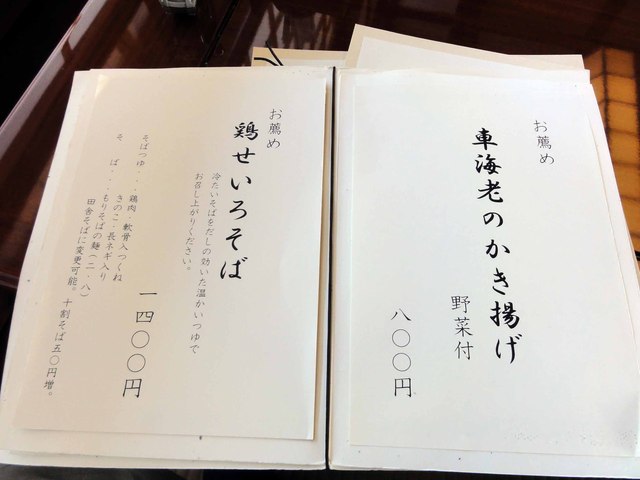 お薦め
車海老のかき揚げ
野菜付
八〇〇円
お薦め
鶏せいろそば
冷たいそばをだしの効いた温かいつゆで
お召し上がりください。
一四〇〇円
そばつゆ・・・鶏肉 軟骨入つくね
きのこ・長ネギ入り
そ ば・・・もりそばの麺(二・八)
田舎そばに変更可能。十割そば五〇円増。